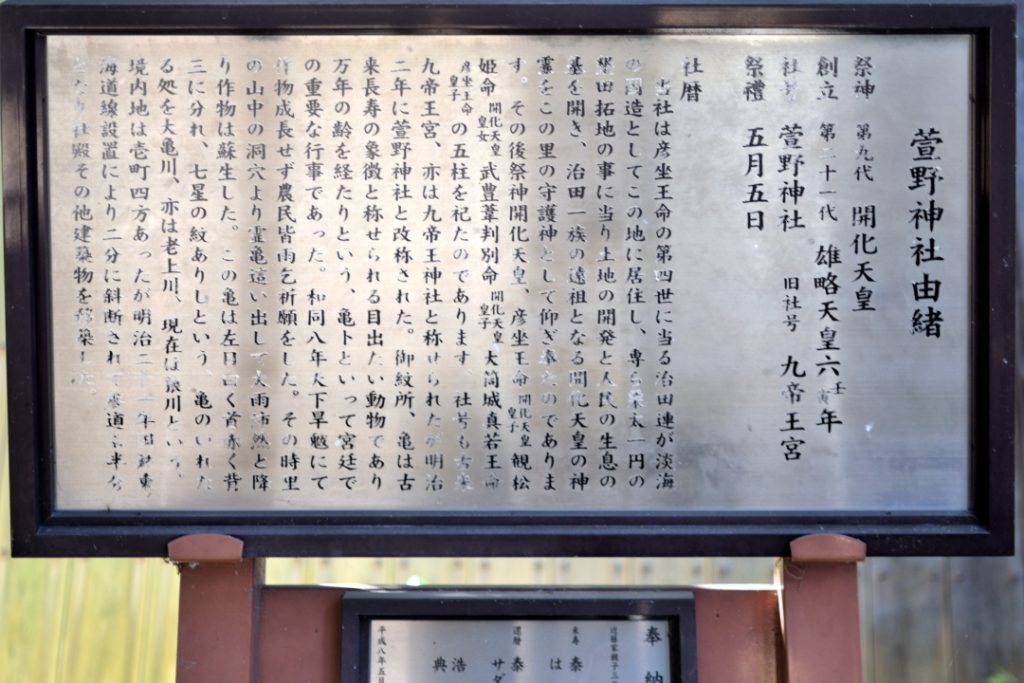 萱野神社由緒
祭神 第九代 開化天皇
創立 第二十一代 雄略天皇六壬寅年
社号 萱野神社 旧社号 九帝王宮
祭禮 五月五日
社暦
当社は彦坐王命の第四世に当る治田連が淡海
の国造としてこの地に居住し、専ら栗太一円の
墾田拓地の事に当り土地の開発と人民の生息の
基を開き、治田一族の遠祖となる開化天皇の神
霊をこの里の守護神として仰ぎ奉たのでありま
す。その後祭神開化天皇、彦坐王命開化天皇皇子観松
姫命開化天皇皇女武豊葦判別命開化天皇皇子大筒城真若王命
彦坐王命皇子の五柱を祀たのであります。社号も古来
九帝王宮、亦は九帝王神社と称せられたが明治
二年に萱野神社と改称された。御紋所、亀は古
来長寿の象徴と称せられる目出たい動物であり
万年の齢を経たりという、亀卜といって宮廷で
の重要な行事であった。和同八年天下旱魃にて
作物成長せず農民皆雨乞祈願をした。その時里
の山中の洞穴より霊亀這い出して大雨沛然と降
り作物は蘇生した。この亀は左目白く首赤く背
三に分れ、七星の紋ありしという、亀のいれた
る処を大亀川、亦は老上川、現在は狼川という。
境内地は壱町四方あったが明治二十一年国鉄東
海道線設置により二分に斜断されて参道も半分
となり社殿その他建築物を移築した。
奉納
近藤家親子三
米寿 泰
は
還暦 泰
サダ
浩
典
平成八年五日